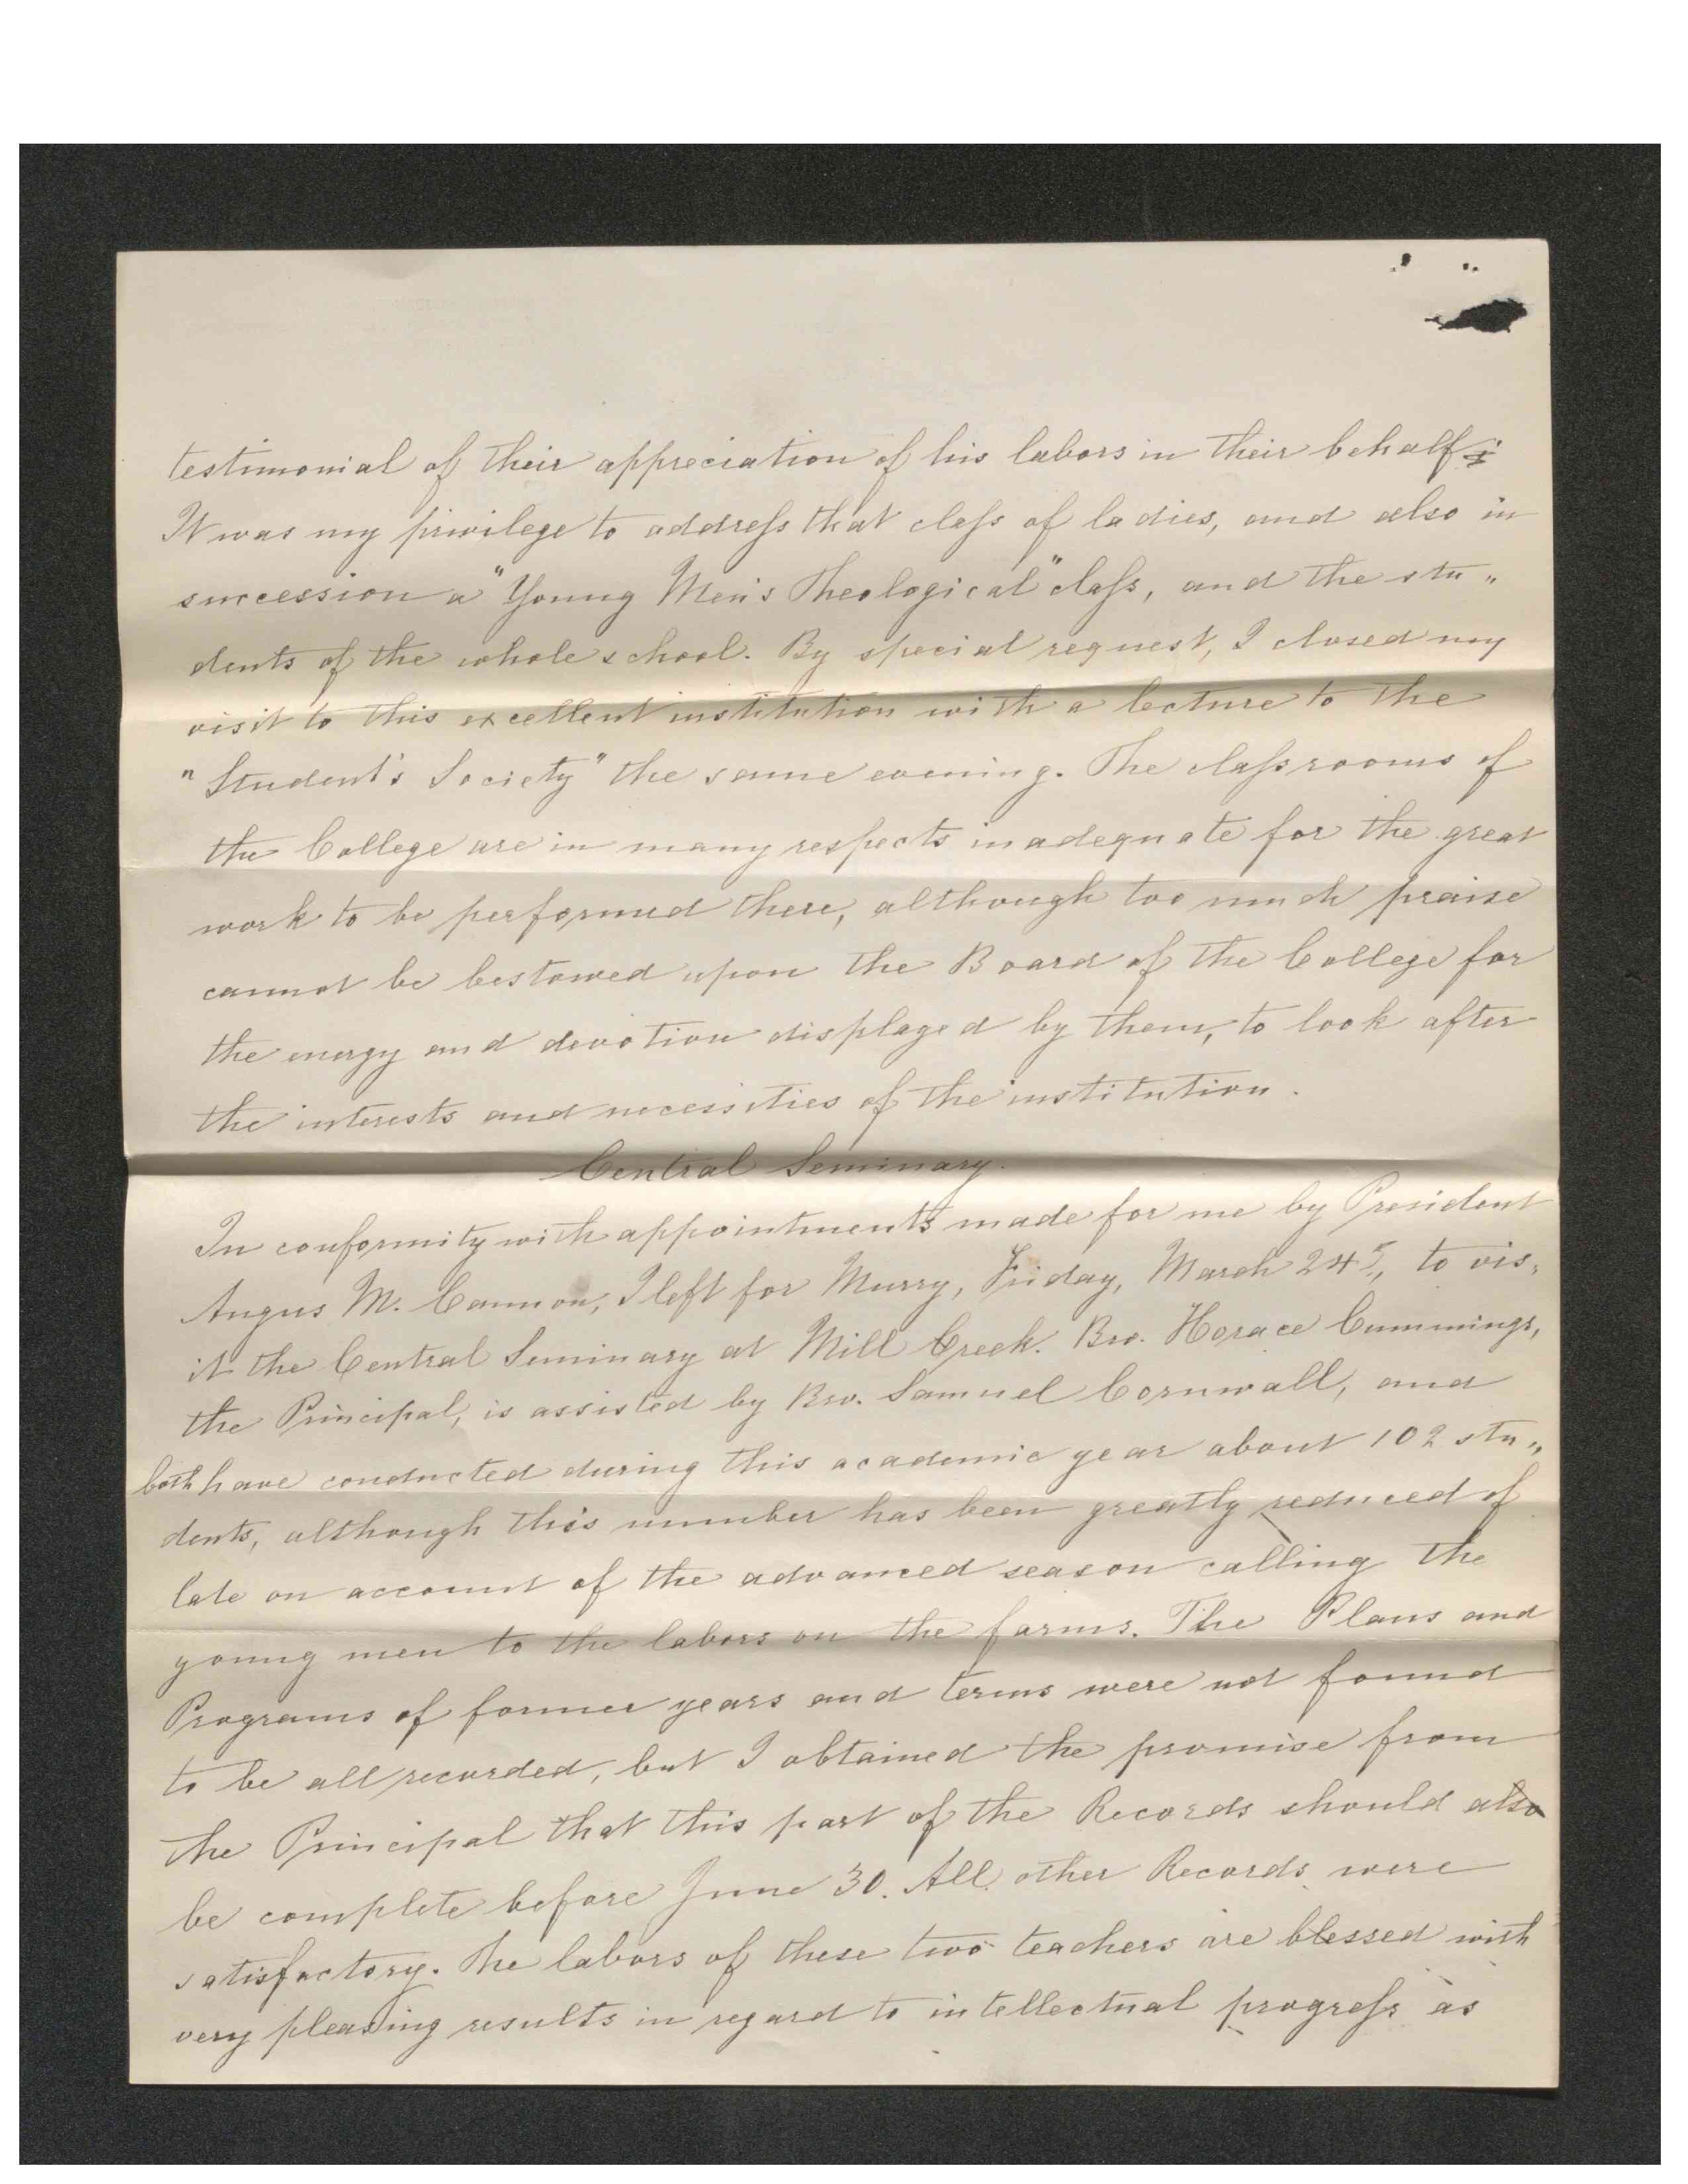 testimonial of their appreciation of his labors in their behalf;
It was my privilege to address that class of ladies, and also in
succession a "Young Men's Theological" class, and the stu„
dents of the whole school. By special request, I closed my
visit to this excellent institution with a lecture to the
"Student's Society" the same evening. The class rooms of
the College are in many respects inadequate for the great
work to be performed there, although too much praise
cannot be bestowed upon the Board of the College for
the energy and devotion displayed by them, to look after
the interests and necessities of the institution.
Central Seminary.
In conformity with appointments made for me by President
Angus M. Cannon, I left for Murry, Friday, March 24, to vis„
it the Central Seminary at Mill Creek. Bro. Horace Cummings,
the Principal, is assisted by Bro. Samuel Cornwall, and
both have conducted during this academic year about 102 stu„
dents, although this number has been greatly reduced of
late on account of the advanced season calling the
young men to the labors on the farms. The Plans and
Programs of former years and terms were not found
to be all recorded, but I obtained the promise from
the Principal that this part of the Records should also
be complete before June 30. All other Records were
satisfactory. The labors of these two teachers are blessed with
very pleasing results in regard to intellectual progress as